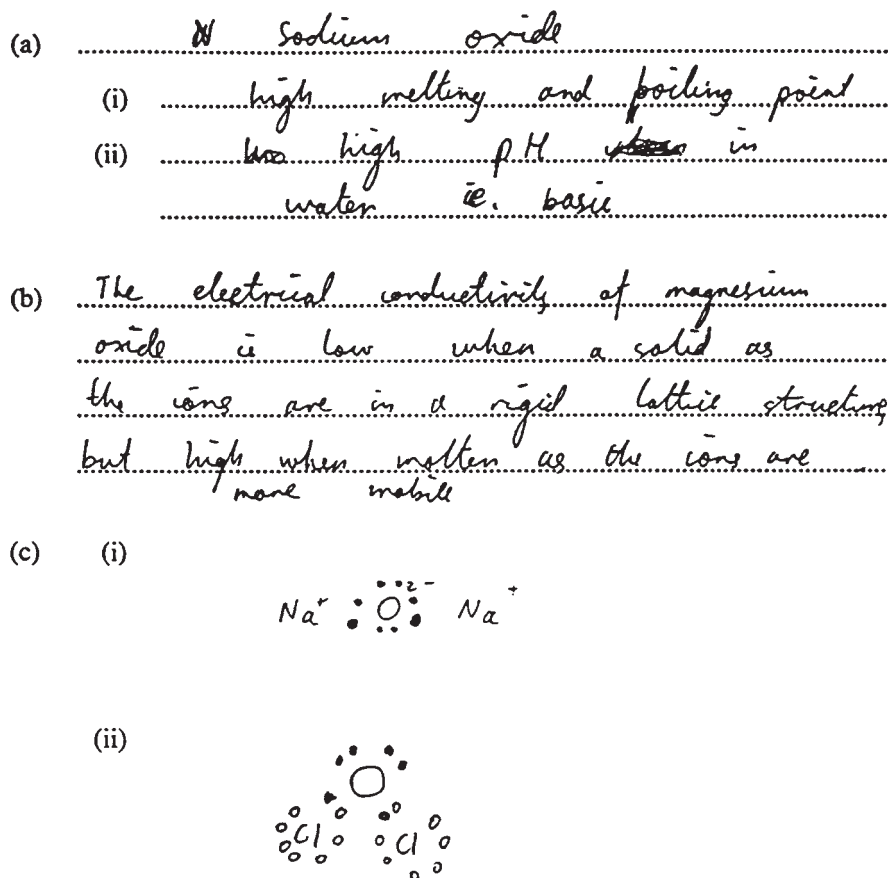 (a) sodium oxide
(i) high melting and boiling point
(ii) high pH in
water ie. basic
(b) The electrical conductivity of magnesium
oxide is low when a solid as
the ions are in a rigid lattice structure,
but high when molten as the ions are
more mobile
(c) (i)
Na⁺ O²⁻ Na⁺
(ii)
O
Cl Cl